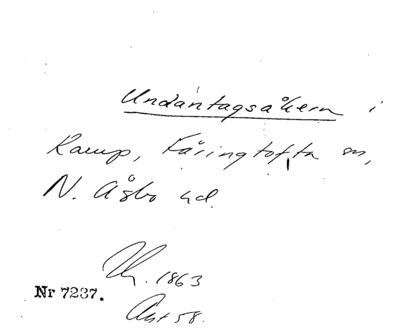 Undantagsåkern i
Ramp, Färingtofta sn,
N. Åsbo hd.
1863
Nr 7237.
Akt 58.